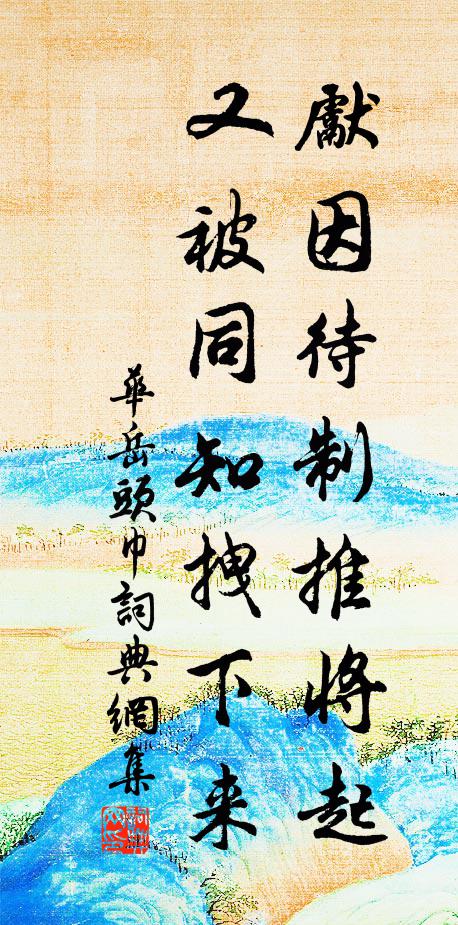 獻因待制推將起
又被同知拽下来
華岳頭巾詞典網集